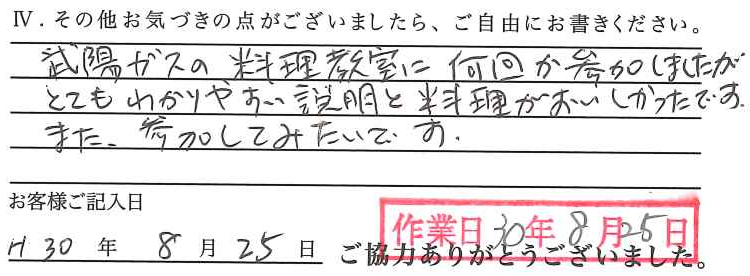 Ⅳ．その他お気づきの点がございましたら、ご自由にお書きください。
武陽ガスの料理教室に何回か参加しましたが
とてもわかりやすい説明と料理がおいしかったです。
また、参加してみたいです.
お客様ご記入日
作業日 30年 8月25日
H 30 年 8 月 25 日 ご協力ありがとうございました。